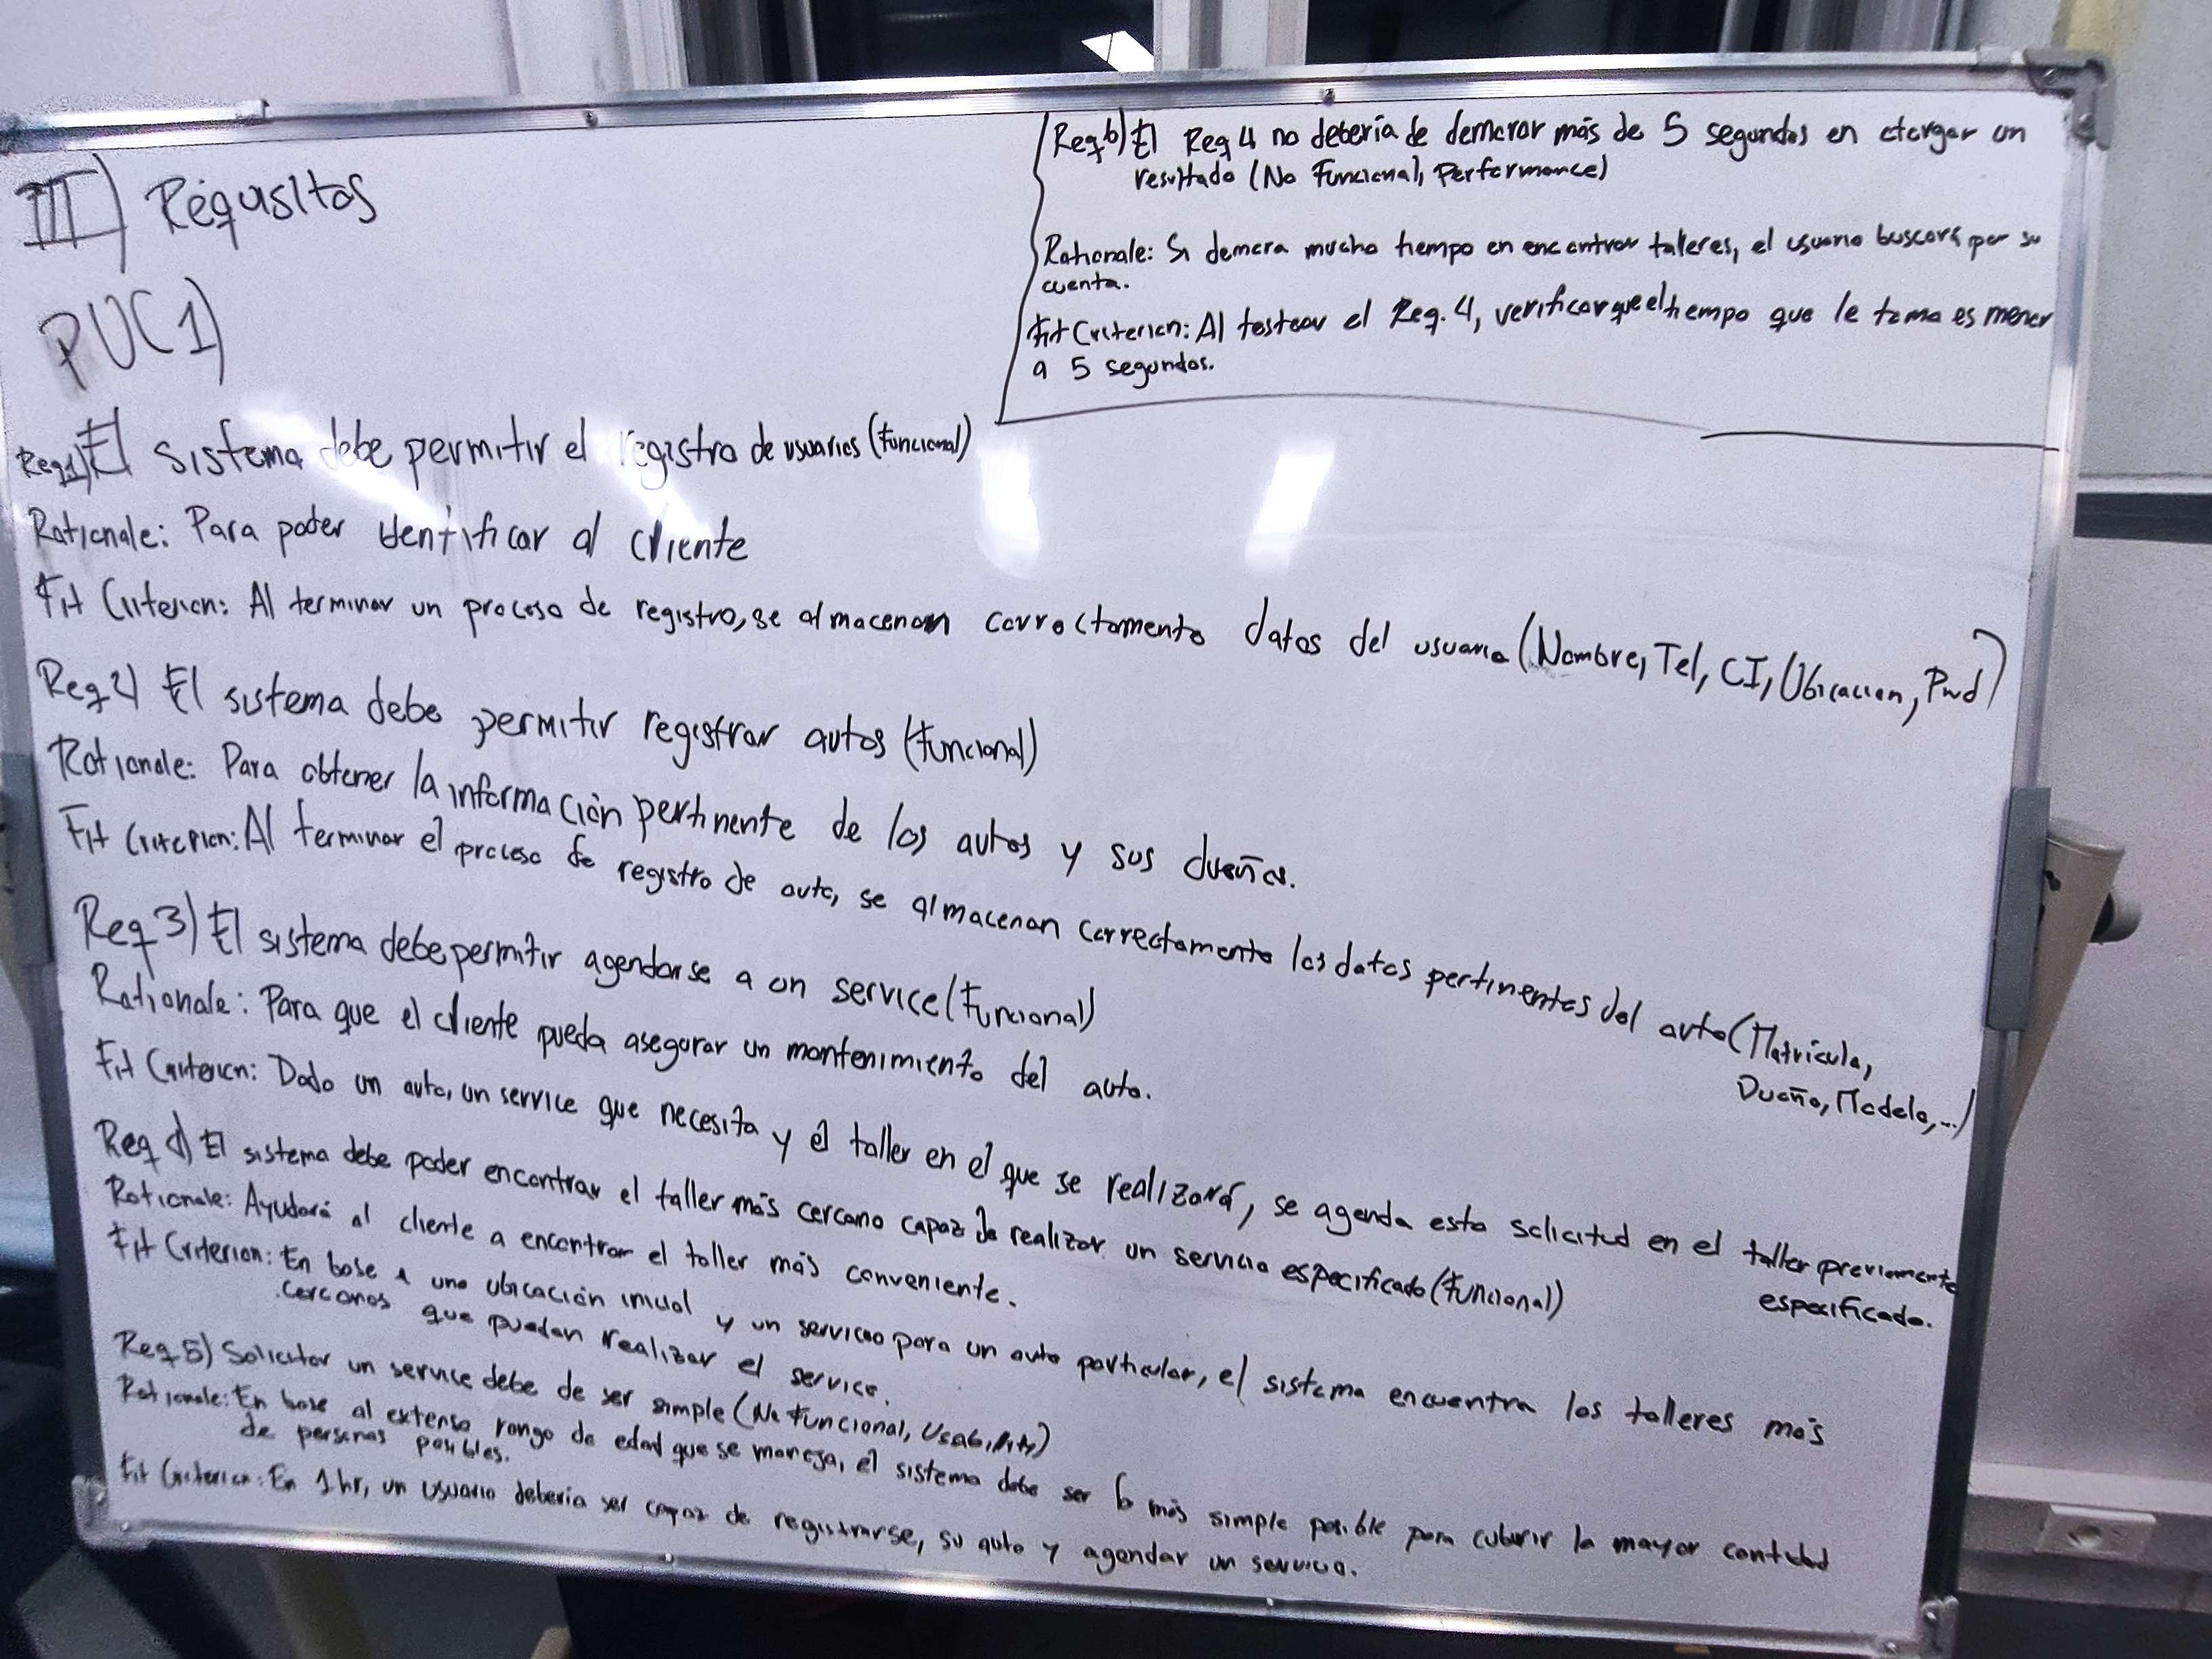 III) Requsitos
PUC1)
Req1) El sistema debe permitir el registro de usuarios (Funcional)
Rationale: Para poder identificar al cliente
Fit Criterion: Al terminar un proceso de registro, se almacenan correctamente datos del usuario (Nombre, Tel, CI, Ubicacion, Pwd)
Req 2) El sistema debe permitir registrar autos (Funcional)
Rationale: Para obtener la información pertinente de los autos y sus dueños.
Fit Criterion: Al terminar el proceso de registro de auto, se almacenan correctamente los datos pertinentes del auto (Matrícula,
Dueño, Modelo,...)
Req 3) El sistema debe permitir agendarse a un service (Funcional)
Rationale: Para que el cliente pueda asegurar un mantenimiento del auto.
Fit Criterion: Dado un auto, un service que necesita y el taller en el que se realizará, se agenda esta solicitud en el taller previamente
especificado.
Req 4) El sistema debe poder encontrar el taller más cercano capaz de realizar un servicio especificado (Funcional)
Rationale: Ayudará al cliente a encontrar el taller más conveniente.
Fit Criterion: En base a una ubicación inicial y un servicio para un auto particular, el sistema encuentra los talleres más
cercanos que puedan realizar el service.
Req 5) Solicitar un service debe de ser simple (No Funcional, Usability)
Rationale: En base al extenso rango de edad que se maneja, el sistema debe ser lo más simple posible para cubrir la mayor cantidad
de personas posibles.
Fit Criterion: En 1 hr, un usuario debería ser capaz de registrarse, su auto y agendar un servicio.
Req 6) El Req 4 no debería de demorar más de 5 segundos en otorgar un
resultado (No Funcional, Performance)
Rationale: Si demora mucho tiempo en encontrar talleres, el usuario buscará por su
cuenta.
Fit Criterion: Al testear el Req. 4, verificar que el tiempo que le toma es menor
a 5 segundos.